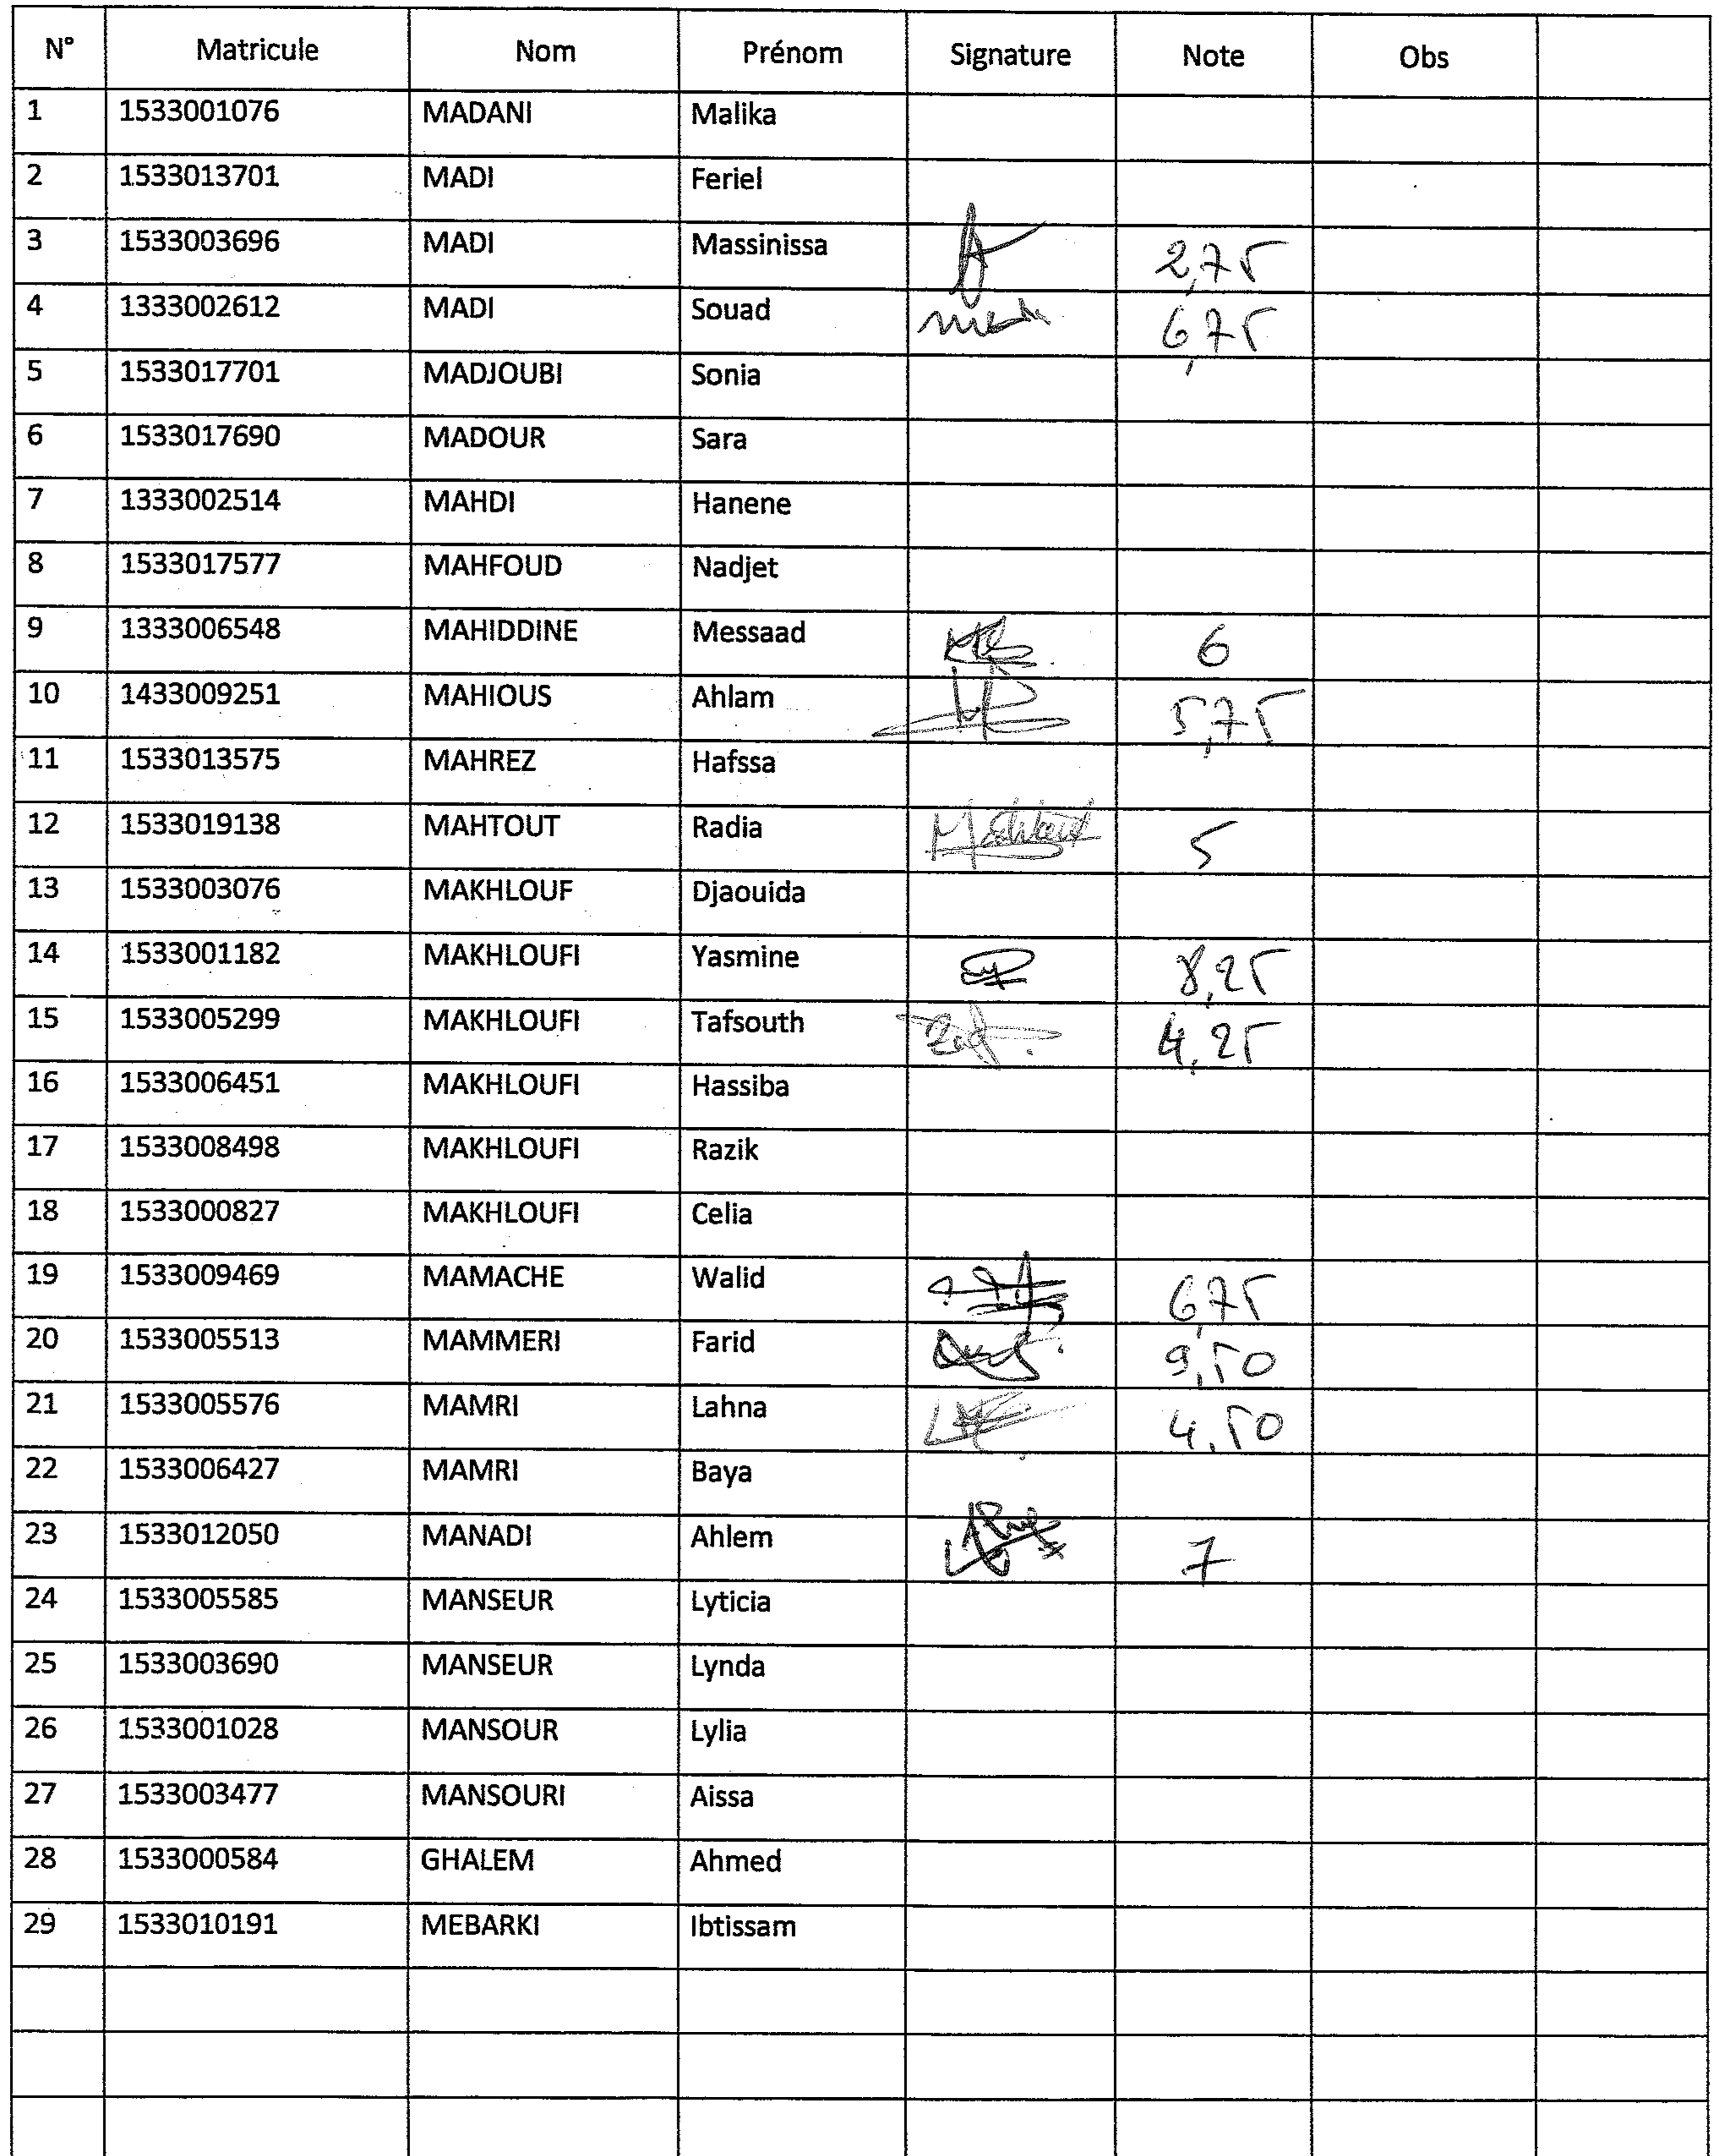 N° Matricule Nom Prénom Signature Note Obs
1 1533001076 MADANI Malika
2 1533013701 MADI Feriel
3 1533003696 MADI Massinissa 2,75
4 1333002612 MADI Souad 6,75
5 1533017701 MADJOUBI Sonia
6 1533017690 MADOUR Sara
7 1333002514 MAHDI Hanene
8 1533017577 MAHFOUD Nadjet
9 1333006548 MAHIDDINE Messaad 6
10 1433009251 MAHIOUS Ahlam 5,75
11 1533013575 MAHREZ Hafssa
12 1533019138 MAHTOUT Radia 5
13 1533003076 MAKHLOUF Djaouida
14 1533001182 MAKHLOUFI Yasmine 8,25
15 1533005299 MAKHLOUFI Tafsouth 4,25
16 1533006451 MAKHLOUFI Hassiba
17 1533008498 MAKHLOUFI Razik
18 1533000827 MAKHLOUFI Celia
19 1533009469 MAMACHE Walid 6,75
20 1533005513 MAMMERI Farid 9,50
21 1533005576 MAMRI Lahna 4,50
22 1533006427 MAMRI Baya
23 1533012050 MANADI Ahlem 7
24 1533005585 MANSEUR Lyticia
25 1533003690 MANSEUR Lynda
26 1533001028 MANSOUR Lylia
27 1533003477 MANSOURI Aissa
28 1533000584 GHALEM Ahmed
29 1533010191 MEBARKI Ibtissam